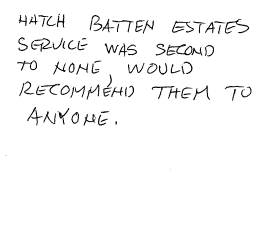 HATCH BATTEN ESTATES
SERVICE WAS SECOND
TO NONE, WOULD
RECOMMEND THEM TO
ANYONE.